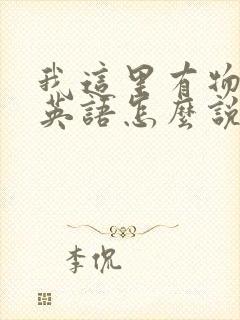 我這里有物
英語怎麼說
李侃